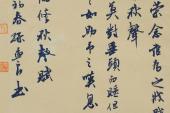 榮念誰為之戕賊
秋聲
莫對垂頭而睡但
如助予之嘆息
修秋聲賦
春孫書